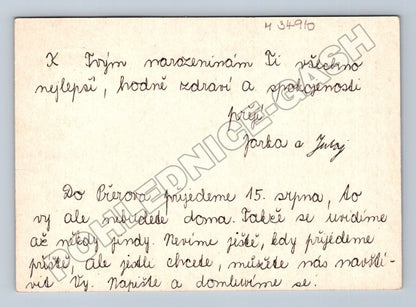 H 34910
K Tvým narozeninám Ti všechno
nejlepší, hodně zdraví a spokojenosti
přejí
Jarka a
Do Přerova přijedeme 15. srpna, to
vy ale nebudete doma. Takže se uvidíme
až někdy jindy. Nevíme ještě, kdy přijedeme
příště, ale jestli chcete, můžete nás navští-
vit Vy. Napište a domluvíme se.
POHLEDNICE-GASH